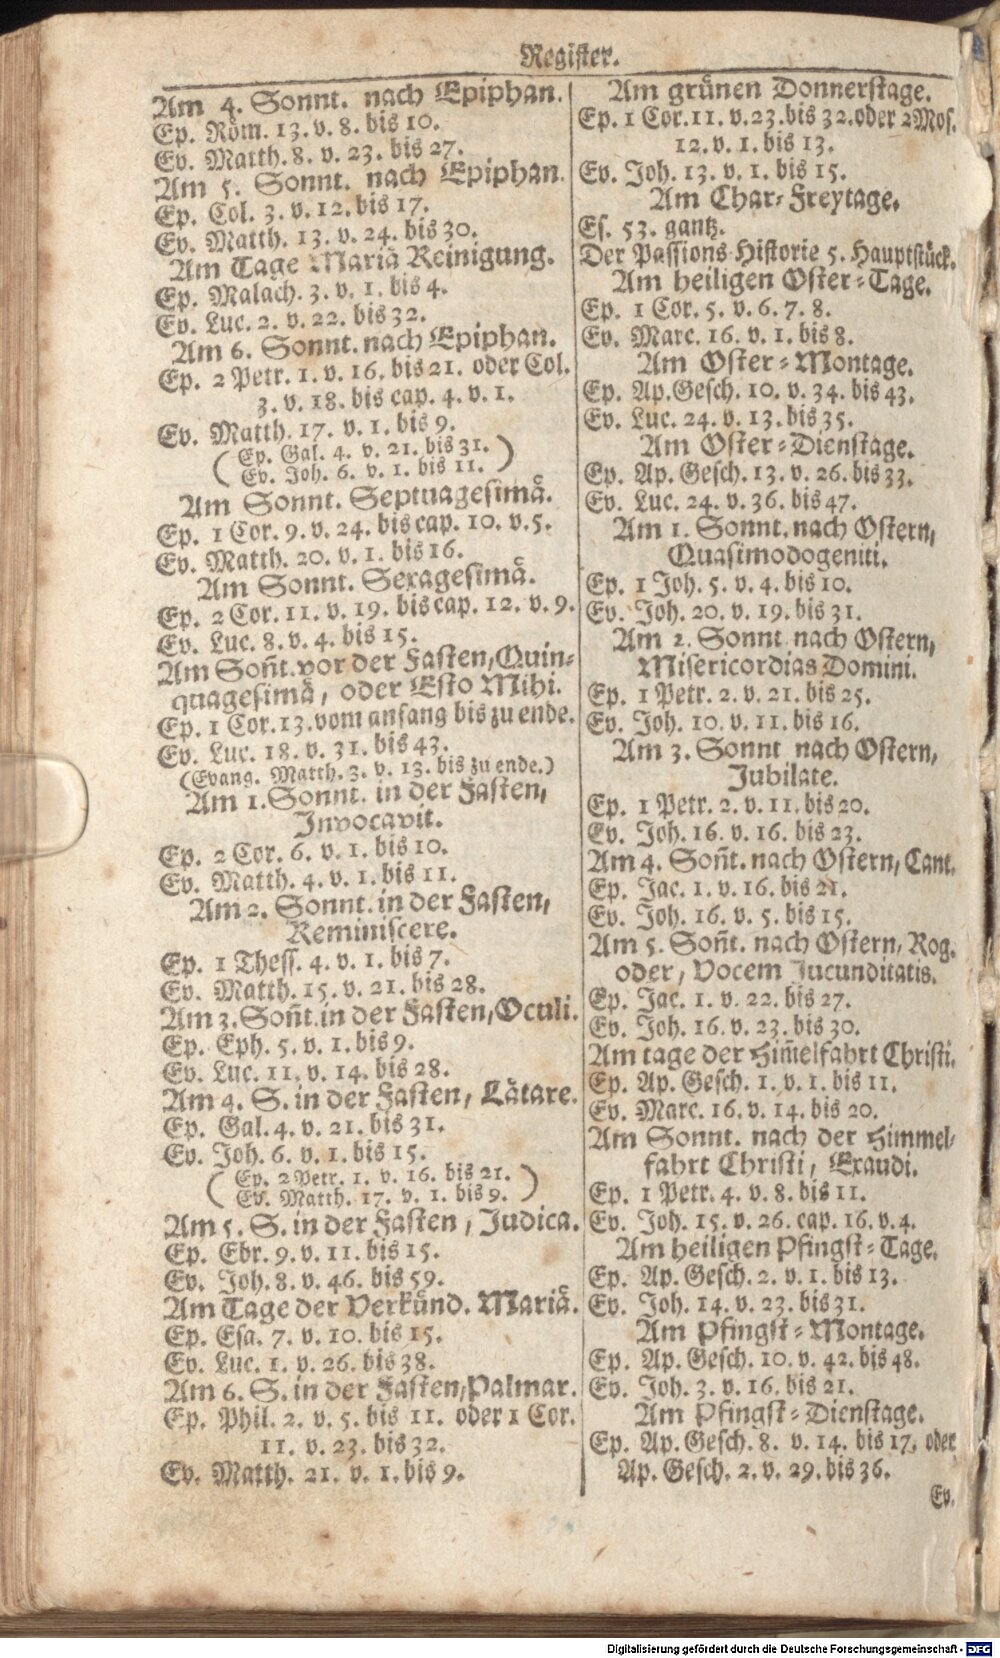 Register.
Am 4. Sonnt. nach Epiphan.
Ep. Röm. 13. v. 8. bis 10.
Ev. Matth. 8. v. 23. bis 27.
Am 5. Sonnt. nach Epiphan.
Ep. Col. 3. v. 12. bis 17.
Ev. Matth. 13. v. 24. bis 30.
Am Tage Mariä Reinigung.
Ep. Malach. 3. v. 1. bis 4.
Ev. Luc. 2. v. 22. bis 32.
Am 6. Sonnt. nach Epiphan.
Ep. 2 Petr. 1. v. 16. bis 21. oder Col.
3. v. 18. bis cap. 4. v. 1.
Ev. Matth. 17. v. 1. bis 9.
( Ep. Gal. 4. v. 21. bis 31. )
( Ev. Joh. 6. v. 1. bis 11. )
Am Sonnt. Septuagesimä.
Ep. 1 Cor. 9. v. 24. bis cap. 10. v. 5.
Ev. Matth. 20. v. 1. bis 16.
Am Sonnt. Sexagesimä.
Ep. 2 Cor. 11. v. 19. bis cap. 12. v. 9.
Ev. Luc. 8. v. 4. bis 15.
Am Soñt. vor der Fasten, Quin-
quagesimä, oder Esto Mihi.
Ep. 1 Cor. 13. vom anfang bis zu ende.
Ev. Luc. 18. v. 31. bis 43.
(Evang. Matth. 3. v. 13. bis zu ende.)
Am 1. Sonnt. in der Fasten,
Invocavit.
Ep. 2 Cor. 6. v. 1. bis 10.
Ev. Matth. 4. v. 1. bis 11.
Am 2. Sonnt. in der Fasten,
Reminiscere.
Ep. 1 Thess. 4. v. 1. bis 7.
Ev. Matth. 15. v. 21. bis 28.
Am 3. Soñt. in der Fasten, Oculi.
Ep. Eph. 5. v. 1. bis 9.
Ev. Luc. 11. v. 14. bis 28.
Am 4. S. in der Fasten, Lätare.
Ep. Gal. 4. v. 21. bis 31.
Ev. Joh. 6. v. 1. bis 15.
( Ep. 2 Petr. 1. v. 16. bis 21. )
( Ev. Matth. 17. v. 1. bis 9. )
Am 5. S. in der Fasten, Judica.
Ep. Ebr. 9. v. 11. bis 15.
Ev. Joh. 8. v. 46. bis 59.
Am Tage der Verkünd. Mariä.
Ep. Esa. 7. v. 10. bis 15.
Ev. Luc. 1. v. 26. bis 38.
Am 6. S. in der Fasten, Palmar.
Ep. Phil. 2. v. 5. bis 11. oder 1 Cor.
11. v. 23. bis 32.
Ev. Matth. 21. v. 1. bis 9.
Am grünen Donnerstage.
Ep. 1 Cor. 11. v. 23. bis 32. oder 2 Mos.
12. v. 1. bis 13.
Ev. Joh. 13. v. 1. bis 15.
Am Char-Freytage.
Es. 53. gantz.
Der Passions-Historie 5. Hauptstück.
Am heiligen Oster-Tage.
Ep. 1 Cor. 5. v. 6. 7. 8.
Ev. Marc. 16. v. 1. bis 8.
Am Oster-Montage.
Ep. Ap. Gesch. 10. v. 34. bis 43.
Ev. Luc. 24. v. 13. bis 35.
Am Oster-Dienstage.
Ep. Ap. Gesch. 13. v. 26. bis 33.
Ev. Luc. 24. v. 36. bis 47.
Am 1. Sonnt. nach Ostern,
Quasimodogeniti.
Ep. 1 Joh. 5. v. 4. bis 10.
Ev. Joh. 20. v. 19. bis 31.
Am 2. Sonnt nach Ostern,
Misericordias Domini.
Ep. 1 Petr. 2. v. 21. bis 25.
Ev. Joh. 10. v. 11. bis 16.
Am 3. Sonnt nach Ostern,
Jubilate.
Ep. 1 Petr. 2. v. 11. bis 20.
Ev. Joh. 16. v. 16. bis 23.
Am 4. Soñt. nach Ostern, Cant.
Ep. Jac. 1. v. 16. bis 21.
Ev. Joh. 16. v. 5. bis 15.
Am 5. Soñt. nach Ostern, Rog.
oder, Vocem Jucunditatis.
Ep. Jac. 1. v. 22. bis 27.
Ev. Joh. 16. v. 23. bis 30.
Am tage der Him̃elfahrt Christi.
Ep. Ap. Gesch. 1. v. 1. bis 11.
Ev. Marc. 16. v. 14. bis 20.
Am Sonnt. nach der Himmel-
fahrt Christi, Exaudi.
Ep. 1 Petr. 4. v. 8. bis 11.
Ev. Joh. 15. v. 26. cap. 16. v. 4.
Am heiligen Pfingst-Tage.
Ep. Ap. Gesch. 2. v. 1. bis 13.
Ev. Joh. 14. v. 23. bis 31.
Am Pfingst-Montage.
Ep. Ap. Gesch. 10. v. 42. bis 48.
Ev. Joh. 3. v. 16. bis 21.
Am Pfingst-Dienstage.
Ep. Ap. Gesch. 8. v. 14. bis 17. oder
Ap. Gesch. 2. v. 29. bis 36.
Ev.
Digitalisierung gefördert durch die Deutsche Forschungsgemeinschaft - DFG